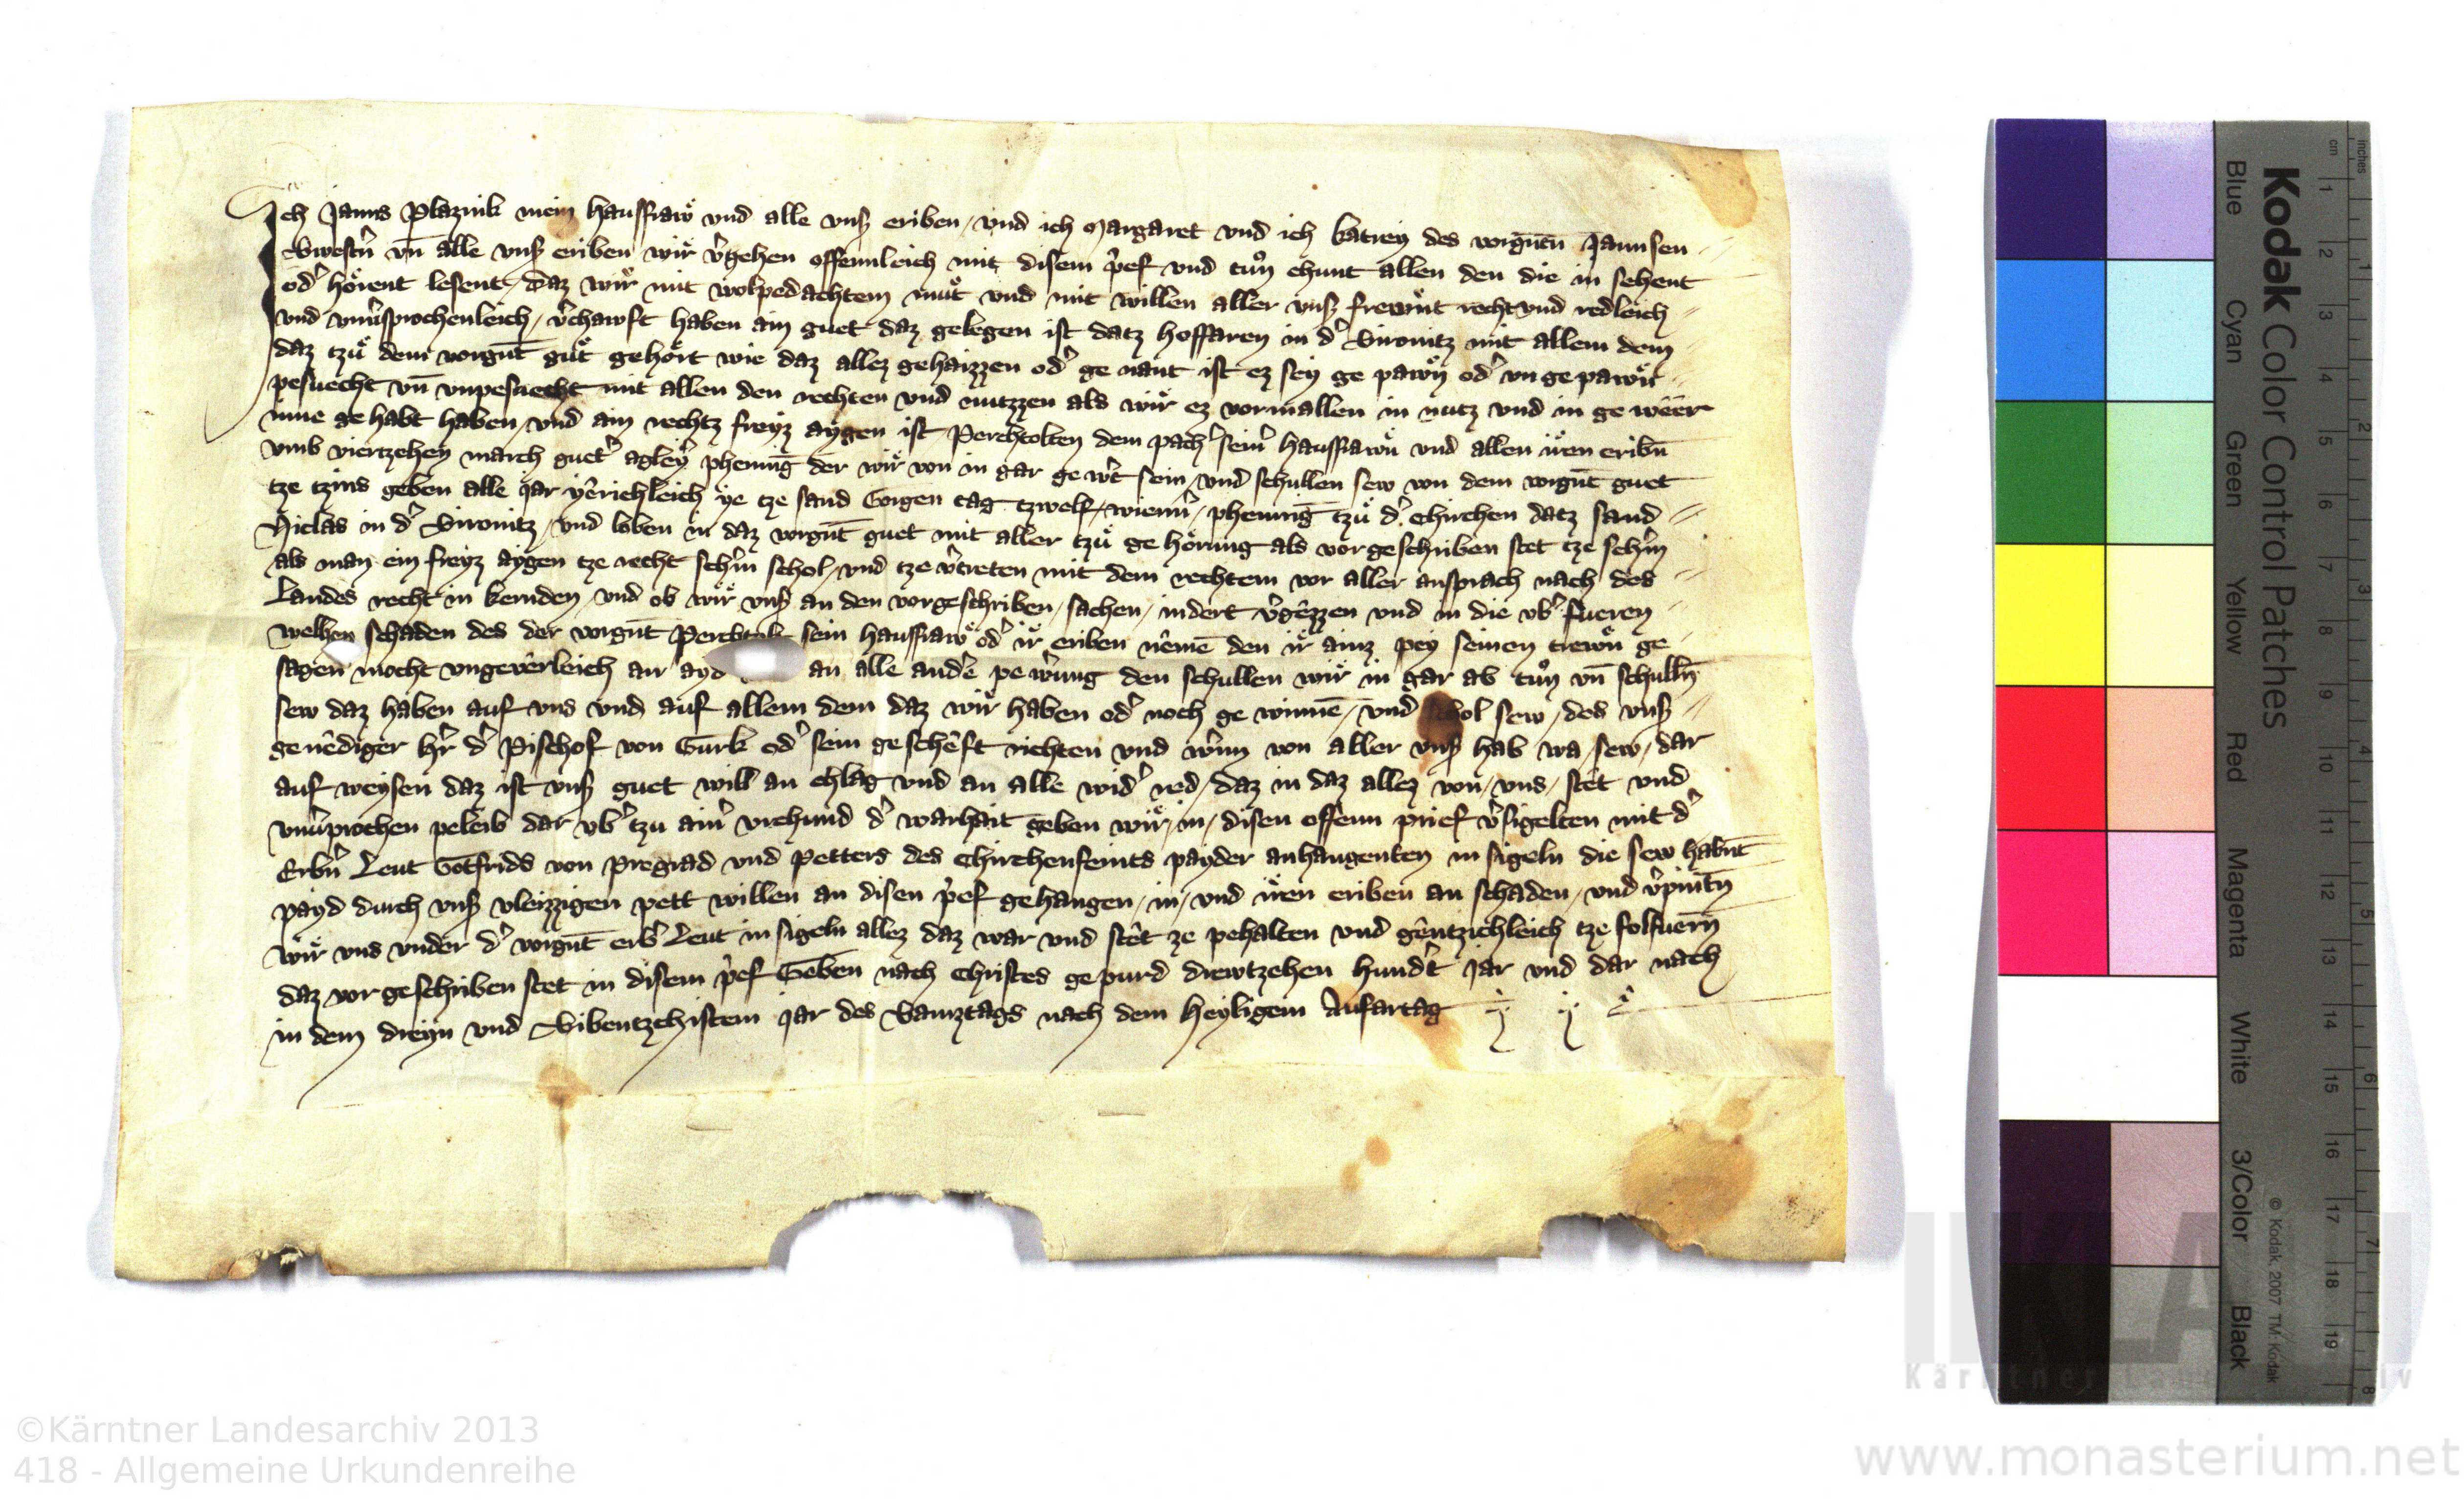 Ich Janns Plaznik mein hausfrawͤ vnd alle vnsß eriben / vnd ich Margaret vnd ich katrey des vorgn̄tn̄ Jannsen
Swestn̓ vn̄ alle vnsß eriben wiͤr v̓gehen offennleich mit disem p̓ef vnd tuͤn chunt allen den die in sehent
od̓ hoͤrent lesent / daz wiͤr mit wolpedachtem muͤt vnd mit willen aller vnsß frewnt recht vnd redleich
vnd vnu̓sprochenleich / v̓chawft haben ain guet daz gelegen ist datz hoffaren in d̓ Sironitz mit allem dem
daz tzuͤ dem vorgn̄t guͤt gehoͤrt wie daz allez gehaizzen od̓ ge nant ist ez sey ge pawn od̓ vn ge pawn
pesuecht vn̄ vnpesuecht mit allen den rechten vnd nutzzen als wiͤr ez vormallen in nutz vnd in ge wêer
inne ge habt haben / vnd ain rechtz freyz aygen ist Perchtolten dem pach̓ sein̓ hausfrawn vnd allen iͤren eribn̄
vmb viertzehen march guet̓ agley̓ pheninḡ der wiͤr von in gar ge w̓t sein / vnd schullen sew von dem vorgn̄t guet
tze tzins geben alle jar yêrichleich ye tze sand Gorgen tag tzwelf / wienn̓ / pheninḡ tzuͤ d̓ chirchen datz sand
Niclas in d̓ Sironitz / vnd loben in daz vorgn̄t guet mit aller tzuͤ ge hoͤrung als vor geschriben stet tze sch̓m
als man ein freyz aygen tze recht sch̓m schol / vnd tze v̓treten mit dem rechtem vor aller ansprach nach des
Landes recht in kernden / vnd ob wiͤr vnsß an den vorgeschriben / sachen / indert v̓gêzzen vnd in die vb̓ fueren
welhen schaden des der vorgn̄t Perchtolt sein hausfrawͤ od̓ iͤr eriben nêmē den iͤr ainz pey seinen trewn ge
sagen mocht vngevêrleich an ayd an alle and̓e pe w̓ung den schullen wiͤr in gar ab tuͤn vn̄ schulln̄
sew daz haben auf vns vnd auf allem dem daz wiͤr haben od̓ noch ge winnē / vnd schol sew / des vnsß
genêdiger hr̓ d̓ Pischof von Gurk od̓ sein geschêft richten vnd w̓nn von aller vnsß hab wa / sew / dar
auf weysen daz ist vnsß guet will an chlag vnd an alle wid̓ red / daz in daz allez von / vns / stêt vnd
vnu̓prochen peleib dar vb̓ tzu ain̓ vrchund d̓ warhait geben wiͤr / in / disen offenn prief v̓sigelten mit d̓
Erbn̓ Leut Gotfrids von Pregrad vnd Petters des Chirchenfeints payder anhangenten in sigeln die sew habn̄t
payd durch vnsß vleizzigen pett willen an disen p̓ef gehangen / in / vnd iͤren eriben an schaden / vnd v̓pintn̄
wiͤr vns vnder d̓ vorgn̄t erb̓ Leut in sigeln allez daz war vnd stêt ze pehalten vnd gêntzichleich tze folfuern̄
daz vor geschriben stet in disem p̓ef Geben nach Christes ge purd drewtzehen hund̓t jar vnd dar nach
in dem dreyn vnd Sibentzchistem jar des Samztags nach dem heyligem Aufartag
Kodak Color Control Patches
Blue Cyan Green Yellow Red Magenta White 3/Color Black
© Kodak, 2007 TM: Kodak
cm 1 2 3 4 5 6 7 8 9 10 11 12 13 14 15 16 17 18 19
inches 1 2 3 4 5 6 7 8
©Kärntner Landesarchiv 2013
418 - Allgemeine Urkundenreihe
www.monasterium.net